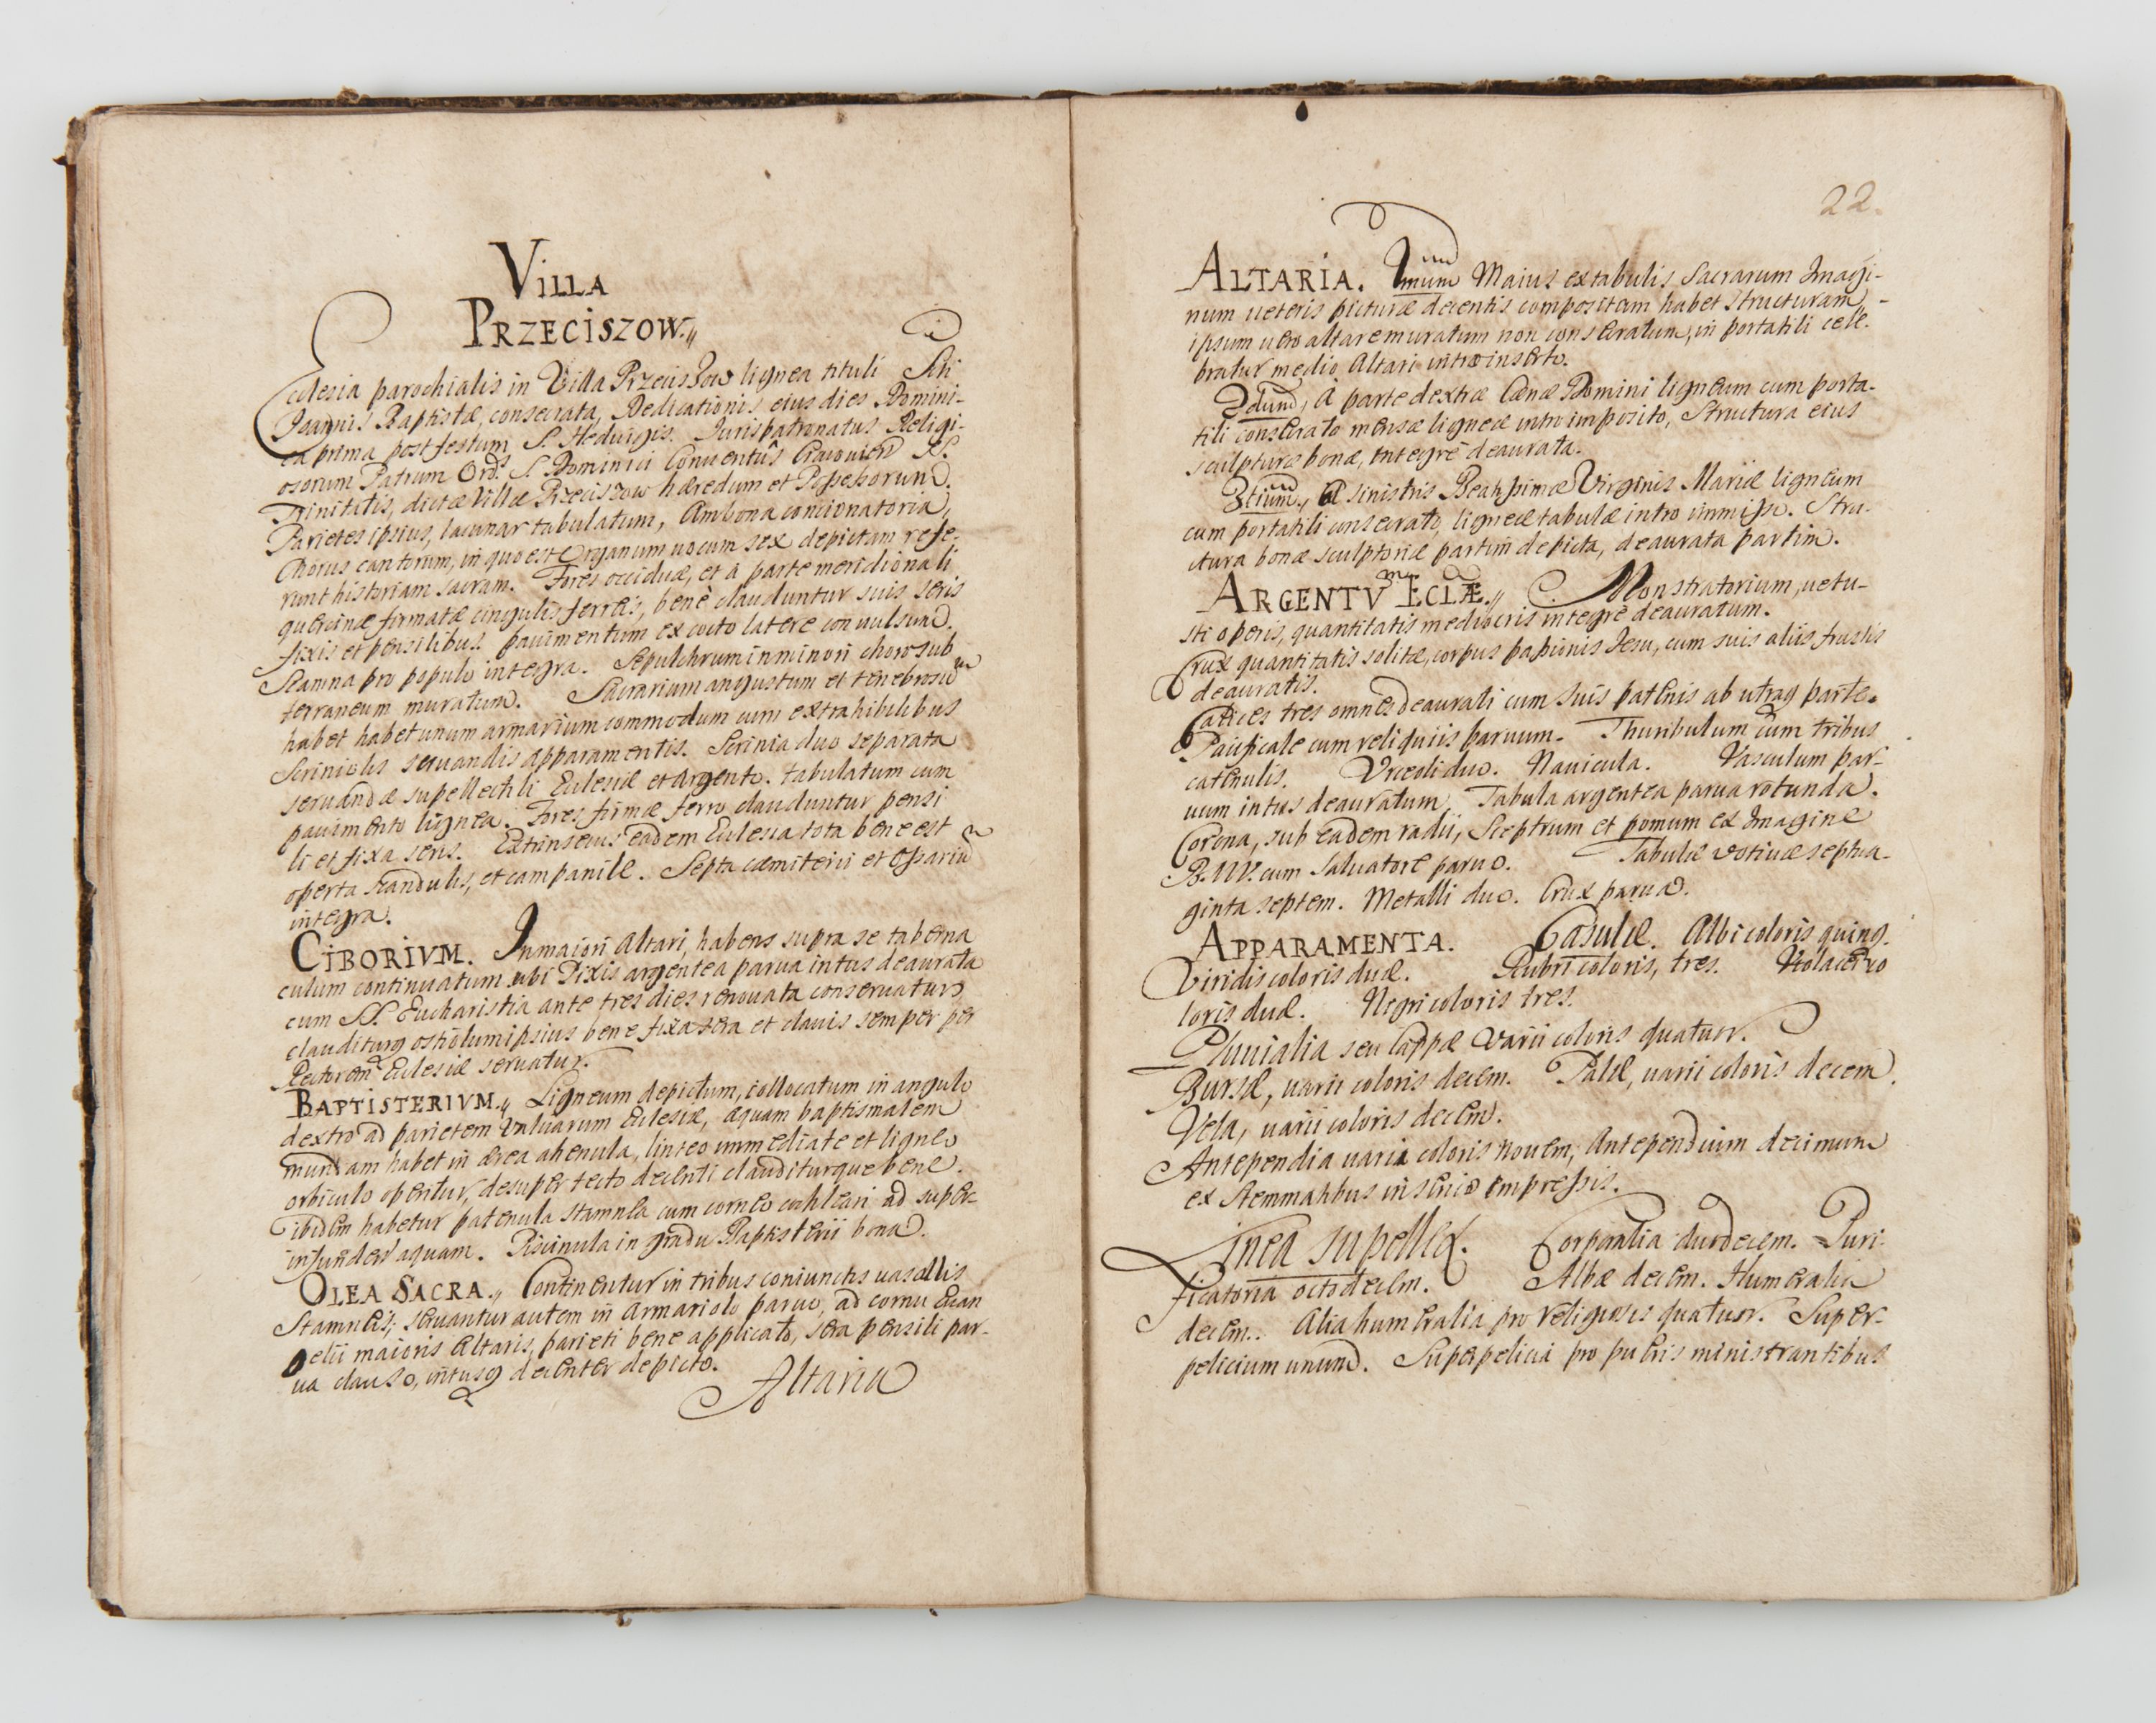 VILLA
PRZECISZOW.
Ecclesia parochialis in Villa Przeciszow lignea tituli Sti
Joannis Baptistæ, consecrata, Dedicationis eius dies Domini-
ca prima post festum S. Heduigis. Jurispatronatus Religi-
osorum Patrum Ord: S. Dominici Conuentûs Cracouien SS.
Trinitatis, dictæ Villæ Przeciszow hæredum et Possessorum.
Parietes ipsius, lacunar tabulatum, Ambona concionatoria,
Chorus cantorum, in quo est Organum uocum sex depictam refe-
runt historiam sacram. Fores occiduæ, et à parte meridionali
quercinæ firmatæ cingulis ferreis, benè clauduntur suis seris
fixis et pensilibus. pauimentum ex cocto latere conuulsum.
Scamna pro populo integra. Sepulchrum in minori choro sub
terraneum muratum. Sacrarium angustum et tenebrosum
habet habet unum armarium commodum cum extrahibilibus
Scriniolis seruandis apparamentis. Scrinia duo separata
seruandæ supellectili Ecclesiæ et argento. tabulatum cum
pauimento lignea. Fores firmæ ferro clauduntur pensi
li et fixa seris. Extrinsecus eadem Ecclesia tota bene est
operta scandulis, et campanile. Septa cæmiterii et Ossarium
integra.
CIBORIVM. In maiori Altari, habens supra se taberna
culum continuatum ubi Pixis argentea parua intus deaurata
cum SS. Eucharistia ante tres dies renouata conseruatur,
clauditurq ostiolum ipsius bene fixa sera et clauis semper per
Rectorem Ecclesiæ seruatur.
BAPTISTERIVM. Ligneum depictum, collocatum in angulo
dextro ad parietem valuarum Ecclesiæ, aquam baptismalem
mundam habet in ærea ahenula, linteo immediate et ligneo
orbiculo operitur, desuper tecto decenti clauditurque bene.
ibidem habetur patenula stamnea cum corneo cochleari ad super
infunden aquam. Piscinula in gradu Baptisterii bona.
OLEA SACRA. Continentur in tribus coniunctis uasculis
Stamneis, seruantur autem in Armariolo paruo, ad cornu Euan
gelii maioris Altaris, parieti bene applicato, sera pensili par-
ua clauso, intusq decenter depicto.
Altaria
22.
ALTARIA. Unum Maius ex tabulis Sacrarum Imagi-
num ueteris picturæ decentis compositam habet structuram,
ipsum uero altare muratum non consecratum, in portatili cele-
bratur medio Altari intro inserto.
2dum, à parte dextra Cænæ Domini ligneum cum porta-
tili consecrato mensæ ligneæ intro imposito, Structura eius
sculpturæ bonæ, integrè deaurata.
3tium, à sinistris Beatissimæ Virginis Mariæ ligneum
cum portatili consecrato, ligneæ tabulæ intro immisso. Stru-
ctura bonæ sculptoriæ partim depicta, deaurata partim.
ARGENTVm ECLÆ. Monstratorium, uetu-
sti operis, quantitatis mediocris integrè deauratum.
Crux quantitatis solitæ, corpus passionis Jesu, cum suis aliis frustis
deauratis.
Calices tres omnes deaurati cum suis patenis ab utraq parte.
Pacificale cum reliquiis paruum. Thuribulum cum tribus
catenulis. Vrceoli duo. Nauicula. Vasculum par-
uum intus deauratum. Tabula argentea parua rotunda.
Corona, sub eadem radii, Sceptrum et pomum ex Imagine
B.M.V. cum Saluatore paruo. Tabulæ votiuæ septua-
ginta septem. Metalli duo. Crux parua.
APPARAMENTA. Casulæ. Albi coloris quinq.
Viridis coloris duæ. Rubri coloris, tres. Violaceo co
loris duæ. Nigri coloris tres.
Pluuialia seu Cappæ varii coloris quatuor.
Bursæ, uarii coloris decem. Palæ, uarii coloris decem.
Vela, uarii coloris decem.
Antependia uaria coloris nouem, Antependium decimum
ex Stemmatibus in serico impressis.
Linea supellex. Corporalia duodecem. Puri-
ficatoria octodecem. Albæ decem. Humeralia
decem. Alia humeralia pro religiosis quatuor. Super-
pelicium unum. Superpelicia pro pueris ministrantibus